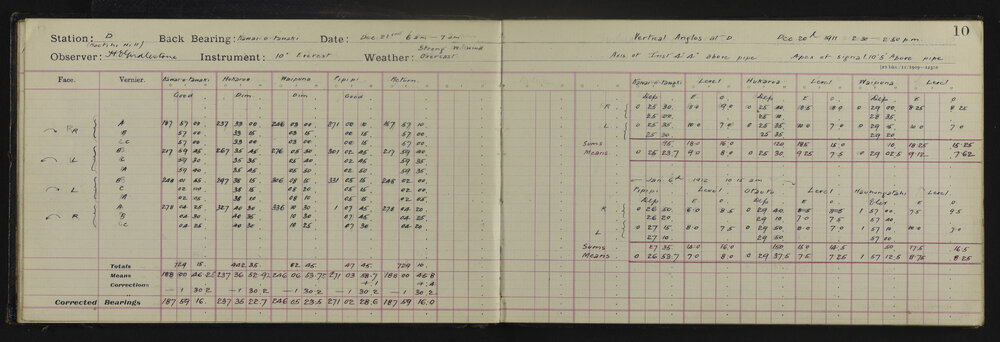 Station: D Back Bearing: Kawai-o-tanaki Date: Dec 21st 6 am – 7 am
(Kaitihi Hill) Strong W. Wind
Observer: Instrument: 10" Everest Weather: Overcast
Face. Vernier. Kawai-o-tanaki Hukaroa Waipuna Pipipi Return.
Good Dim Dim Good
R A 187 57 00 237 33 00 246 03 00 271 00 10 187 57 10
B 57 00 33 00 03 15 00 15 57 00
C 57 00 33 00 03 00 00 15 57 00
L B 217 59 45 267 35 45 276 05 50 301 02 45 217 59 40
C 59 30 35 35 05 40 02 45 59 35
A 59 40 35 45 05 50 02 50 59 35
L B 248 01 55 297 38 15 306 08 15 331 05 15 248 02 00
C 02 10 38 15 08 20 05 15 02 00
A 02 05 38 10 08 10 05 15 02 05
R A 278 04 25 327 40 30 336 10 30 1 07 45 278 04 20
B 04 30 40 35 10 30 07 45 04 25
C 04 25 40 30 10 25 07 30 04 20
Totals 124 15 402 35 82 45 47 45 729 10
Means 188 00 46.25 237 36 52.92 246 06 53.72 271 03 58.7 188 00 45.8
+.1 +.4
Corrections — 1 30.2 — 1 30.2 — 1 30.2 — 1 30.2 — 1 30.2
Corrected Bearings 187 59 16. 237 35 22.7 246 05 23.5 271 02 28.6 187 59 16.0
10
Vertical Angles at D Dec 20th 1911 2.30 – 2.50 p.m.
Axis of Inst 4' 4" above pipe Apex of signal 10.5 Above pipe
Kawai-o-tanaki Level Hukaroa Level Waipuna Level
Dep E O Dep E O Dep E O
R 0 25 30 8.0 9.0 0 25 40 8.5 8.0 0 29 00 8.25 8.25
25 35 25 35 28 35
L 0 25 35 10.0 7.0 0 25 35 10.0 7.0 0 29 15 10.0 7.0
25 30 25 35 29 20
Sums 95 18.0 16.0 120 18.5 15.0 10 18.25 15.25
Means 0 25 23.7 9.0 8.0 0 25 30 9.25 7.5 0 29 02.5 9.12 7.62
Jan 6th 1912 10.15 am
Pipipi Level Otauto Level Haumungatahi Level
Dep E O Dep E O Elev E O
R 0 26 50 6.0 8.5 0 29 40 8.5 1 57 40 7.5 9.5
26 20 29 10 7.0 7.5 57 40
L 0 27 15 8.0 7.5 0 29 50 8.0 7.0 1 57 10 10.0 7.0
27 10 29 50 57 0
Sums 27 35 14.0 16.0 150 15.0 14.5 50 17.5 16.5
Means 0 26 53.7 7.0 8.0 0 29 37.5 7.5 7.25 1 57 12.5 8.75 8.25